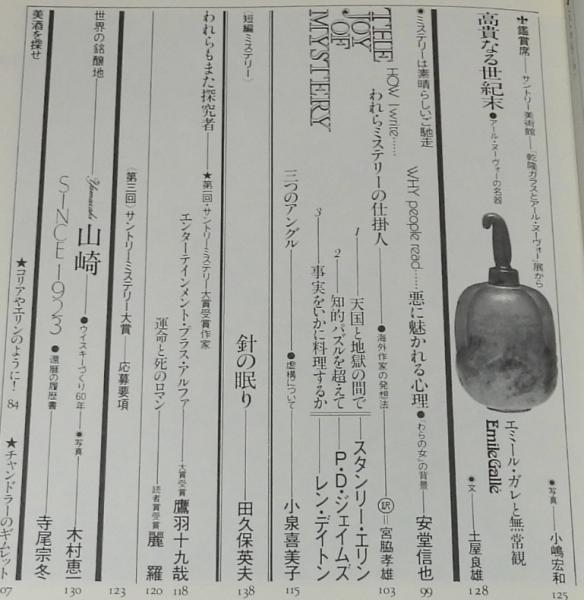 ✢鑑賞席——サントリー美術館——「乾隆ガラスとアール・ヌーヴォー」展から
高貴なる世紀末
●アール・ヌーヴォーの名器
エミール・ガレと無常観
Emile Gallé
●写真——小嶋宏和 125
●文——土屋良雄 128
●ミステリーは素晴らしいご馳走
THE JOY OF MYSTERY
WHY people read……悪に魅かれる心理
●「わらの女」の背景——安堂信也 99
HOW I write……われらミステリーの仕掛人
●海外作家の発想法——訳=宮脇孝雄 103
1——天国と地獄の間で——スタンリー・エリン
2——知的パズルを超えて——P・D・ジェイムズ
3——事実をいかに料理するか——レン・デイトン
三つのアングル——●虚構について——小泉喜美子 115
〈短編ミステリー〉
針の眠り——田久保英夫 138
われらもまた探究者——★第一回・サントリーミステリー大賞受賞作家
エンターテインメント・プラス・アルファ——大賞受賞 鷹羽十九哉 118
運命と死のロマン——読者賞受賞 麗 羅 120
〈第三回〉サントリーミステリー大賞——応募要項 123
世界の銘醸地
Yamazaki
山崎
●ウイスキーづくり60年——●写真——木村恵一 130
SINCE 1923
●還暦の履歴書——寺尾宗冬
美酒を探せ
★コリアやエリンのように! 84
★チャンドラーのギムレット 07